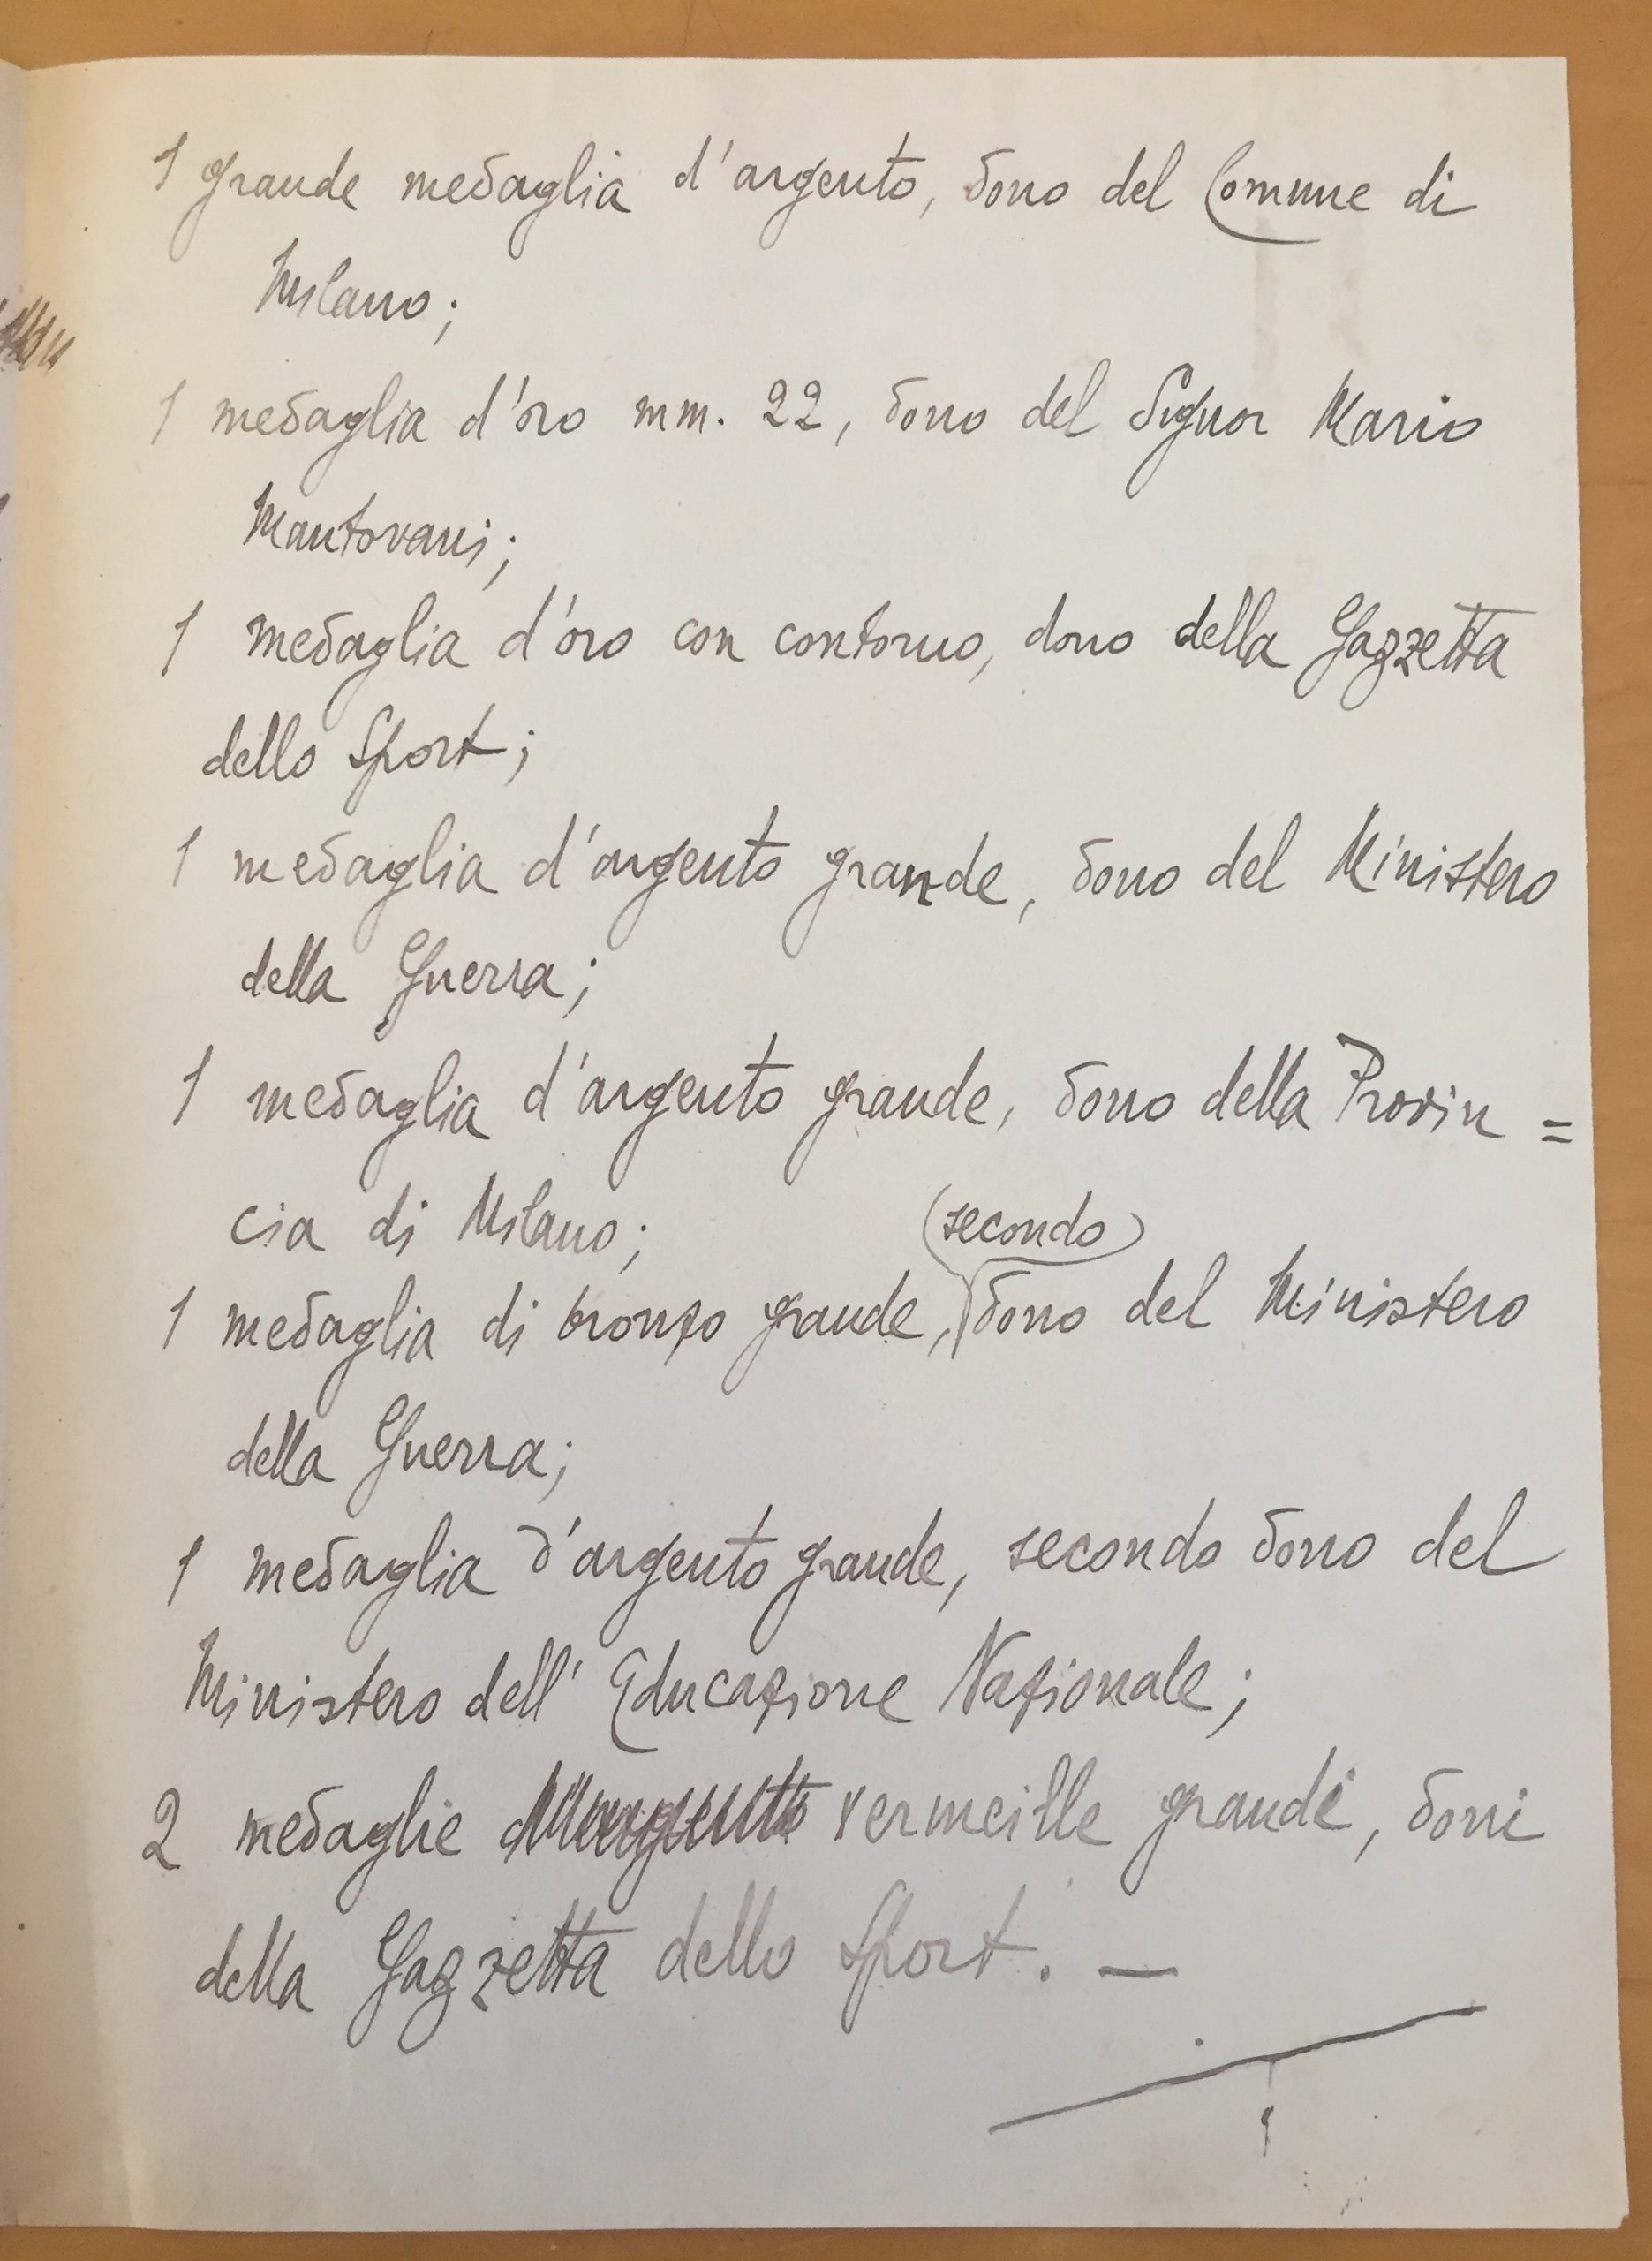 1 grande medaglia d'argento, dono del Comune di
Milano;
1 medaglia d'oro mm. 22, dono del Signor Mario
Mantovani;
1 medaglia d'oro con contorno, dono della Gazzetta
dello Sport;
1 medaglia d'argento grande, dono del Ministero
della Guerra;
1 medaglia d'argento grande, dono della Provin=
cia di Milano;
(secondo)
1 medaglia di bronzo grande, dono del Ministero
della Guerra;
1 medaglia d'argento grande, secondo dono del
Ministero dell'Educazione Nazionale;
2 medaglie vermeille grandi, doni
della Gazzetta dello Sport. —